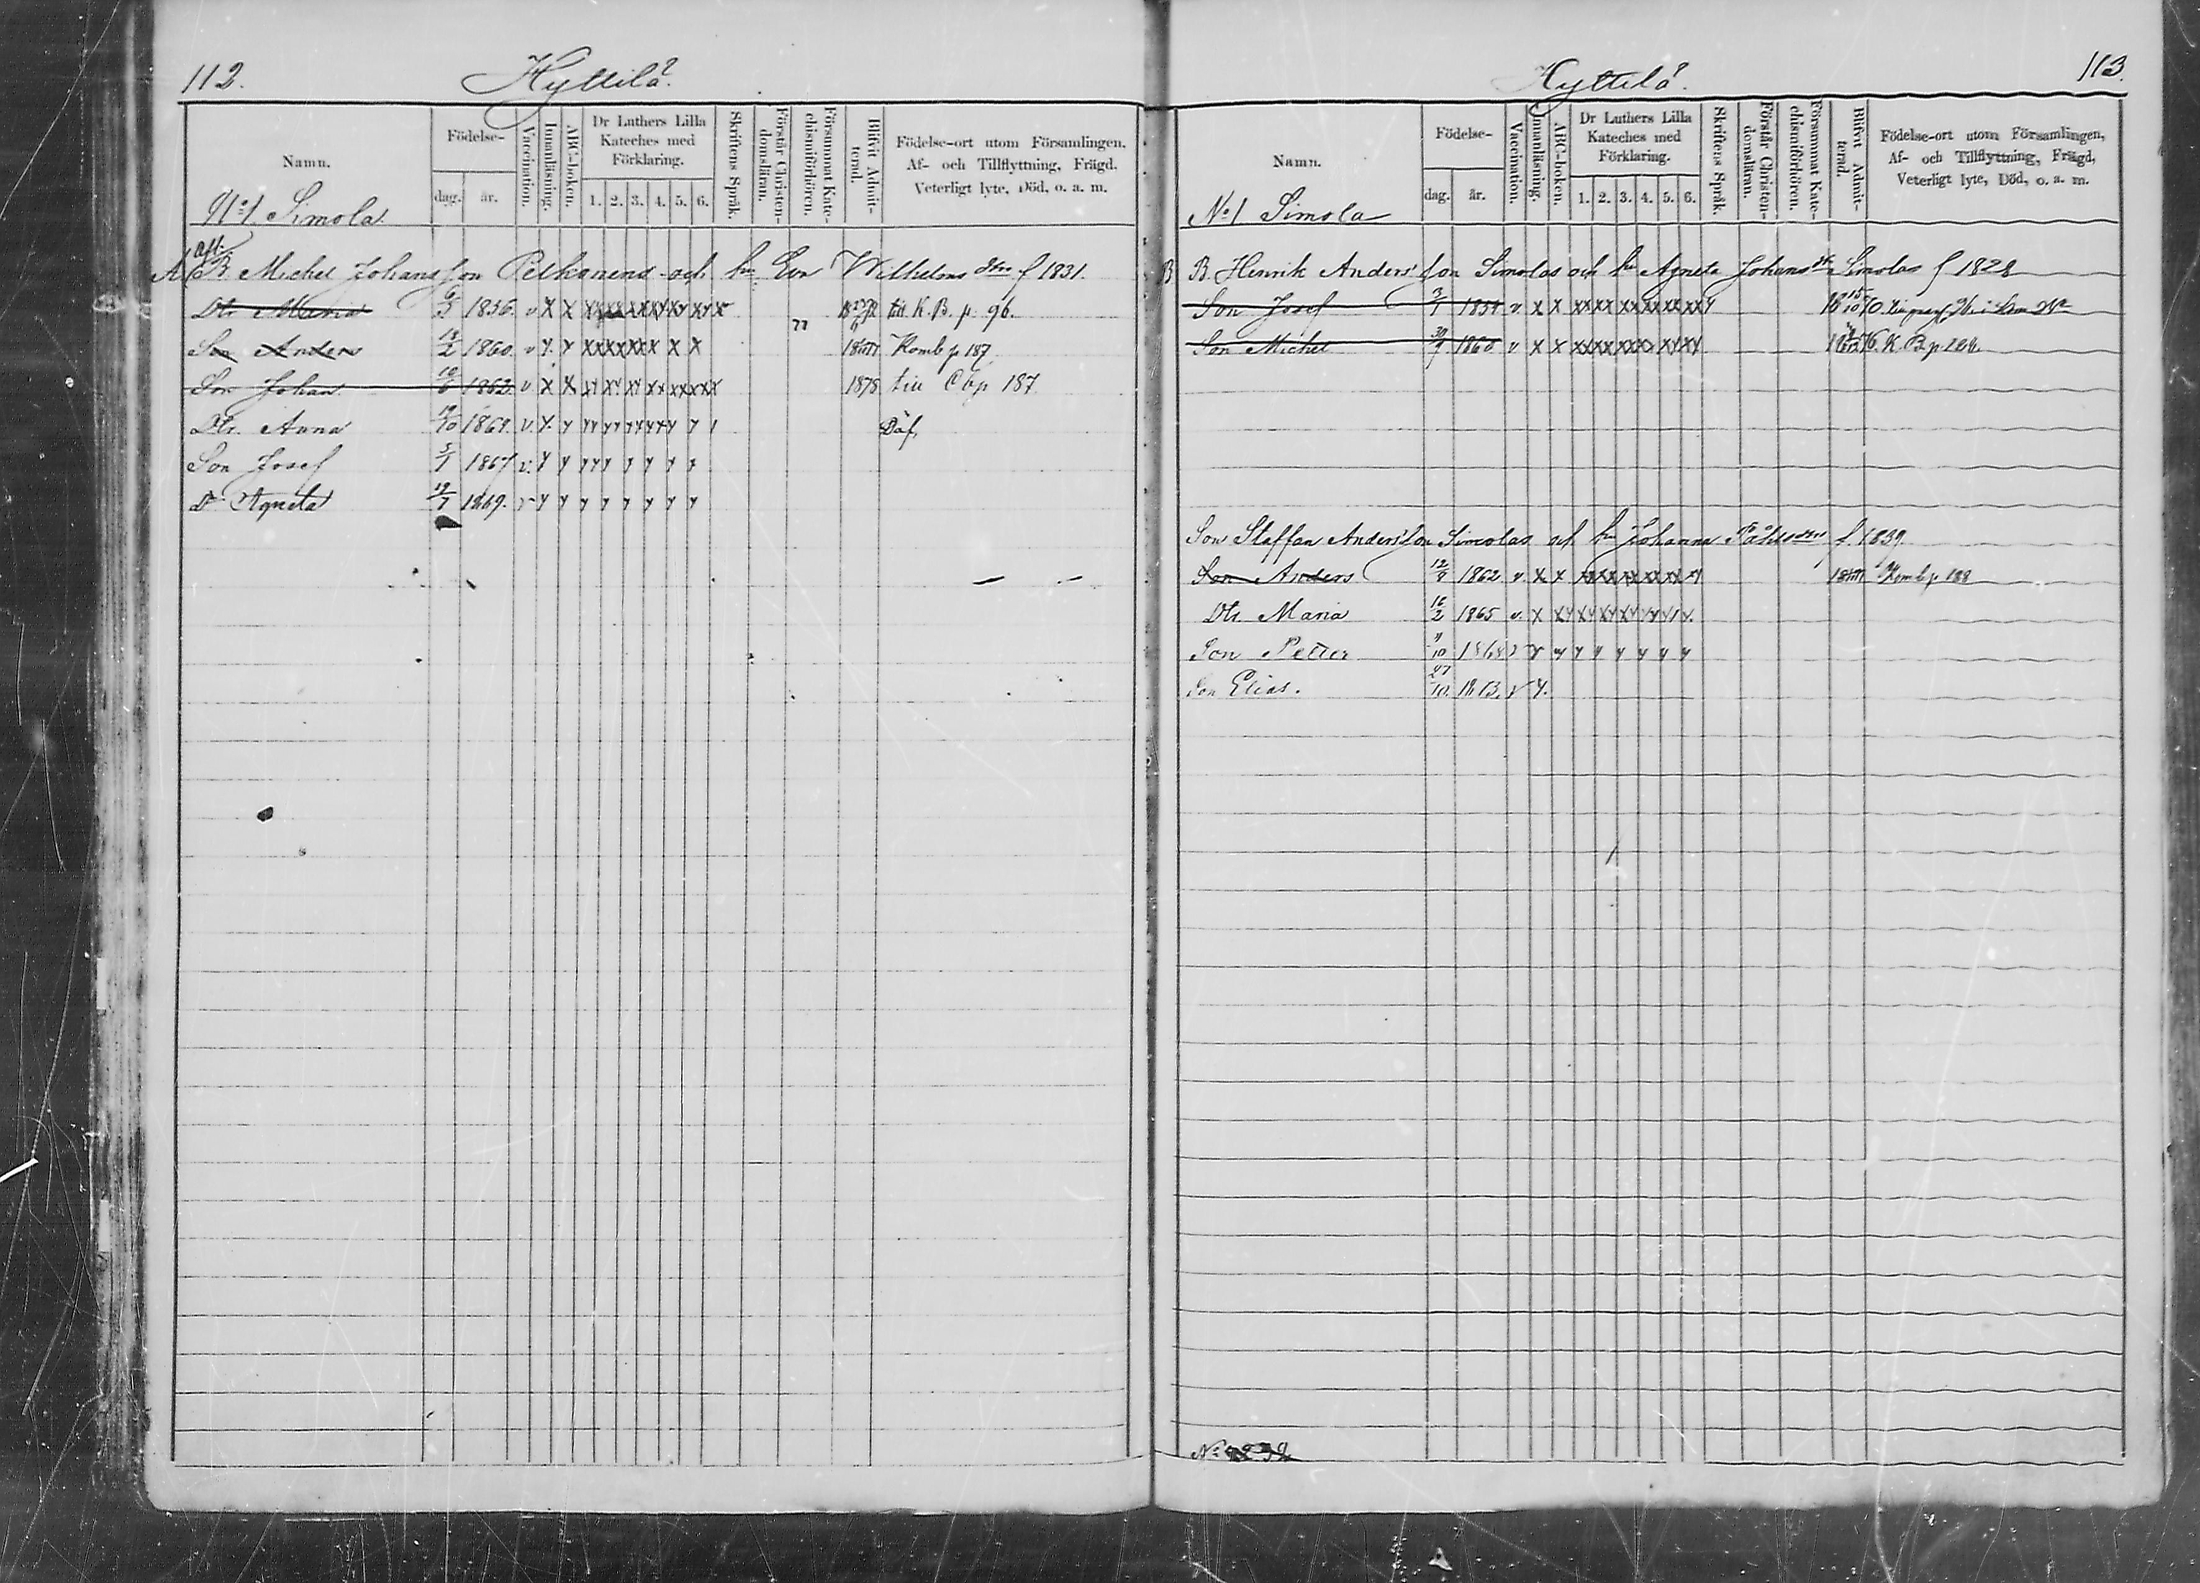 112.
Hyttilä.
Namn.
Födelse-
dag. år.
Vaccination.
Innanläsning.
ABC-boken.
Dr Luthers Lilla Kateches med Förklaring.
1. 2. 3. 4. 5. 6.
Skriftens Språk.
Förstår Christendomsläran.
Försummat Katechismiförhören.
Blifvit Admitterad.
Födelse-ort utom Församlingen. Af- och Tillflyttning, Frägd. Veterligt lyte, Död, o. a. m.
No 1 Simola
A B. Michel Johansson Pelkonens och hu Eva Wilhelms dtr f 1831.
Dtr Maria 6/3 1856. v x x till K. B. p. 96.
Son Anders 13/2 1860. v y. y Komb p 187
Son Johan 1862. v x x 1878 till Cbp 187
Dtr. Anna 1864. v. y. y Döf.
Son Josef 5/7 1867 v. y y
Dr Agneta 19/7 1869. v y y
113.
Hyttilä.
Namn.
Födelse-
dag. år.
Vaccination.
Innanläsning.
ABC-boken.
Dr Luthers Lilla Kateches med Förklaring.
1. 2. 3. 4. 5. 6.
Skriftens Språk.
Förstår Christendomsläran.
Försummat Katechismiförhören.
Blifvit Admitterad.
Födelse-ort utom Församlingen, Af- och Tillflyttning, Frägd, Veterligt lyte, Död, o. a. m.
No 1 Simola
B B. Henrik Andersson Simolas och hu Agneta Johans dtr Simolas f 1828
Son Josef 3/1 1854 v. x x
Son Michel 30/9 1860 v x x K. B p 208.
Son Staffan Andersson Simolas och hu Johanna f. 1839.
Son Anders 12/8 1862 v. x x Komb p 188
Dtr. Maria 16/2 1865 v. x
Son Petter 11/10 1868 v
Son Elias. 27/10 1873. v y.
No